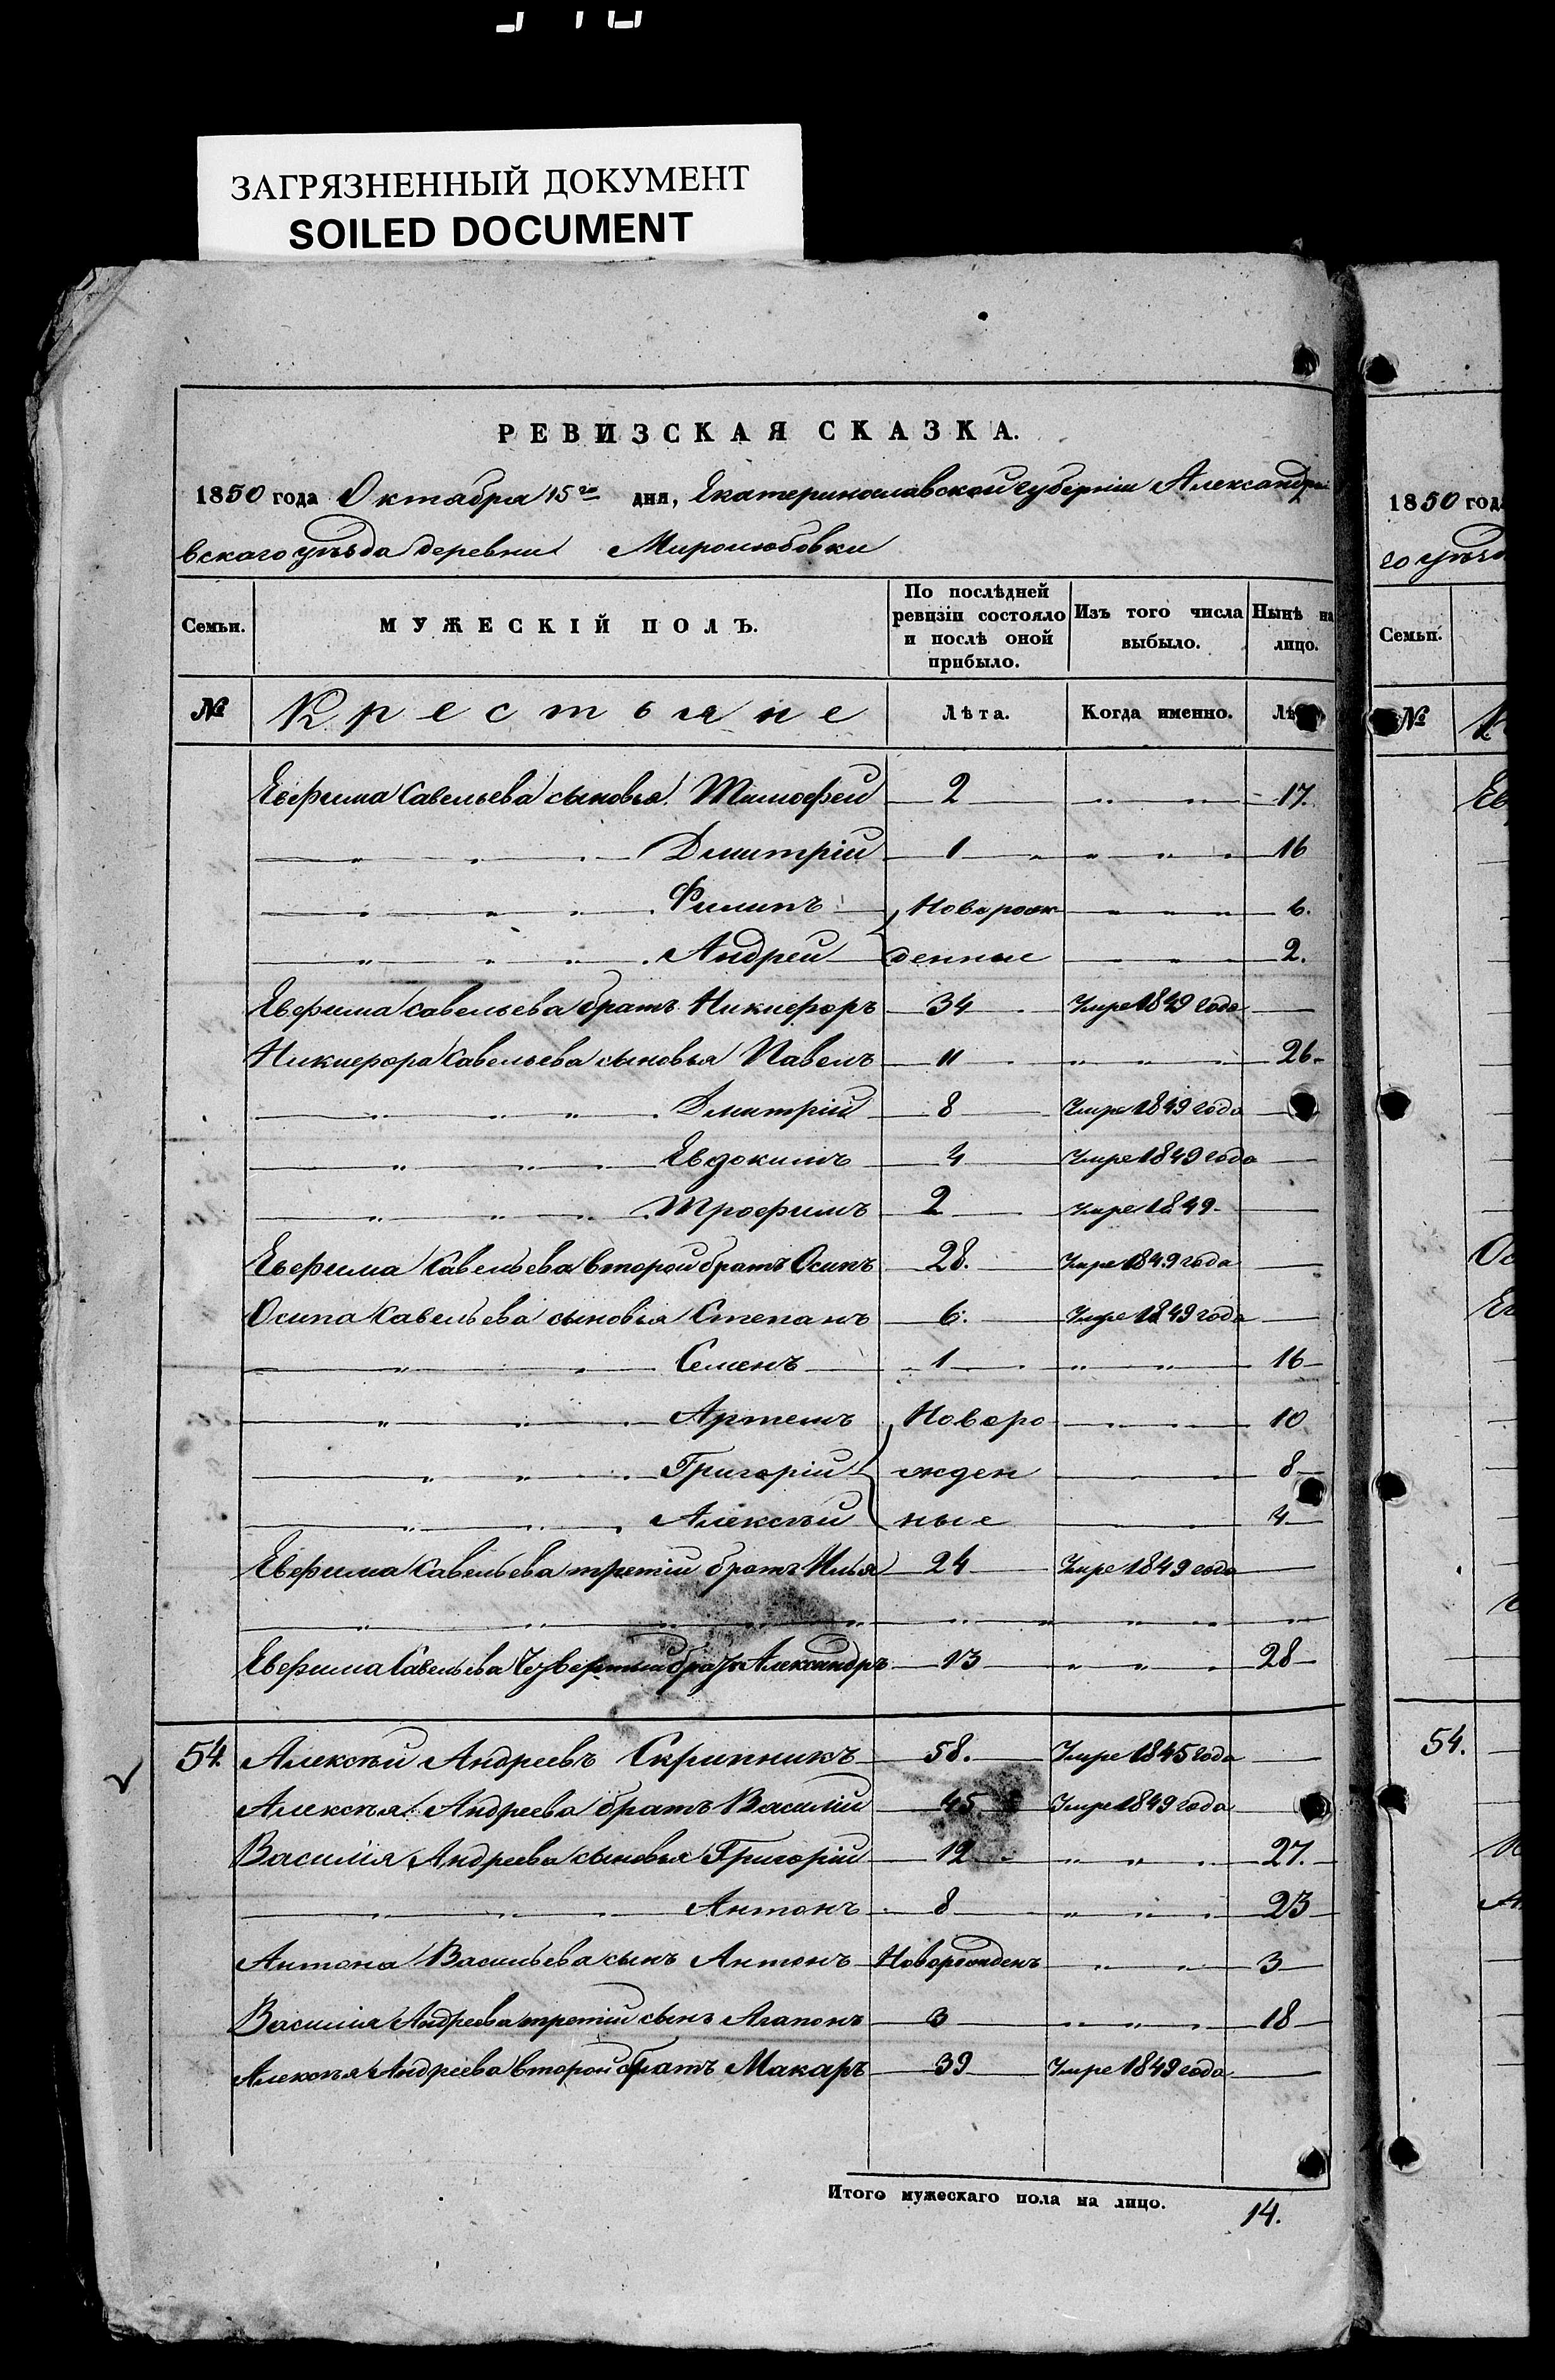 ЗАГРЯЗНЕННЫЙ ДОКУМЕНТ
SOILED DOCUMENT
РЕВИЗСКАЯ СКАЗКА.
1850 года Октября 15го дня, Екатеринославской губерніи Александро
вскаго уѣзда деревни Миролюбовки
Семьи. МУЖЕСКІЙ ПОЛЪ. По послѣдней ревизіи состояло и послѣ оной прибыло. Изъ того числа выбыло. Нынѣ на лицо.
№ Крестьяне Лѣта. Когда именно.
Евфима Савельева сыновья Тимофей 2 " " 17.
" " " Дмитрій 1 " " " " 16
" " " Филипъ Новорож " " " 6.
" " " Андрей денные " " 2.
Евфима Савельева братъ Никифоръ 34 Умре 1849 года
Никифора Савельева сыновья Павелъ 11 " " " 26
" " " Дмитрій 8 Умре 1849 года
" " " Евдокимъ 4 Умре 1849 года
" " " Трофимъ 2 Умре 1849
Евфима Савельева второй братъ Осипъ 28. Умре 1849 года
Осипа Савельева сыновья Степанъ 6. Умре 1849 года
" " Семенъ 1 " " 16
" " " Артемъ Новоро " " 10
" " " Григорій жден " 8
" " " Алексѣй ные " 4
Евфима Савельева третій братъ Илья 24 Умре 1849 года
" " " " " " " " " "
Евфима Савельева Четвертый братъ Александръ 13 " " " 28
54 Алексѣй Андреевъ Скрипникъ 58. Умре 1845 года
Алексѣя Андреева братъ Василій 45 Умре 1849 года
Василія Андреева сыновья Григорій 12 " " " 27.
" " " Антонъ 8 " " " 23
Антона Васильева сынъ Антонъ Новорожденъ " " 3
Василія Андреева третій сынъ Агапонъ 3 " " " 18
Алексѣя Андреева второй братъ Макаръ 39 Умре 1849 года
Итого мужескаго пола на лицо. 14.
1850 год
го уѣзд
Семьи.
№ К
Ев
Ос
54.